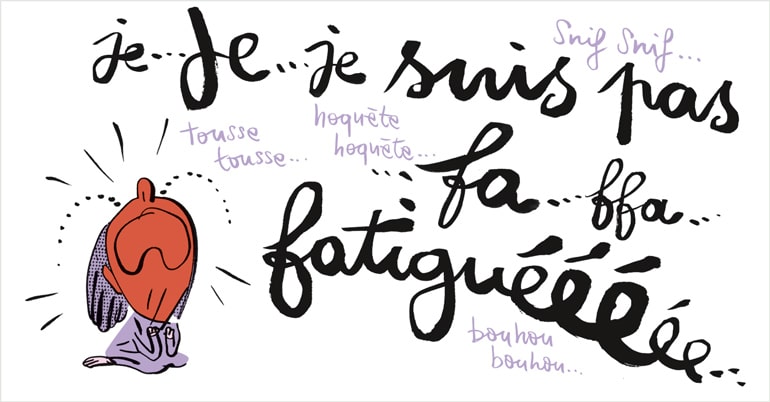 je... Je... je suis pas
snif snif...
tousse
tousse...
hoquète
hoquète...
fa... ffa...
fatiguééééé...
bouhou
bouhou...